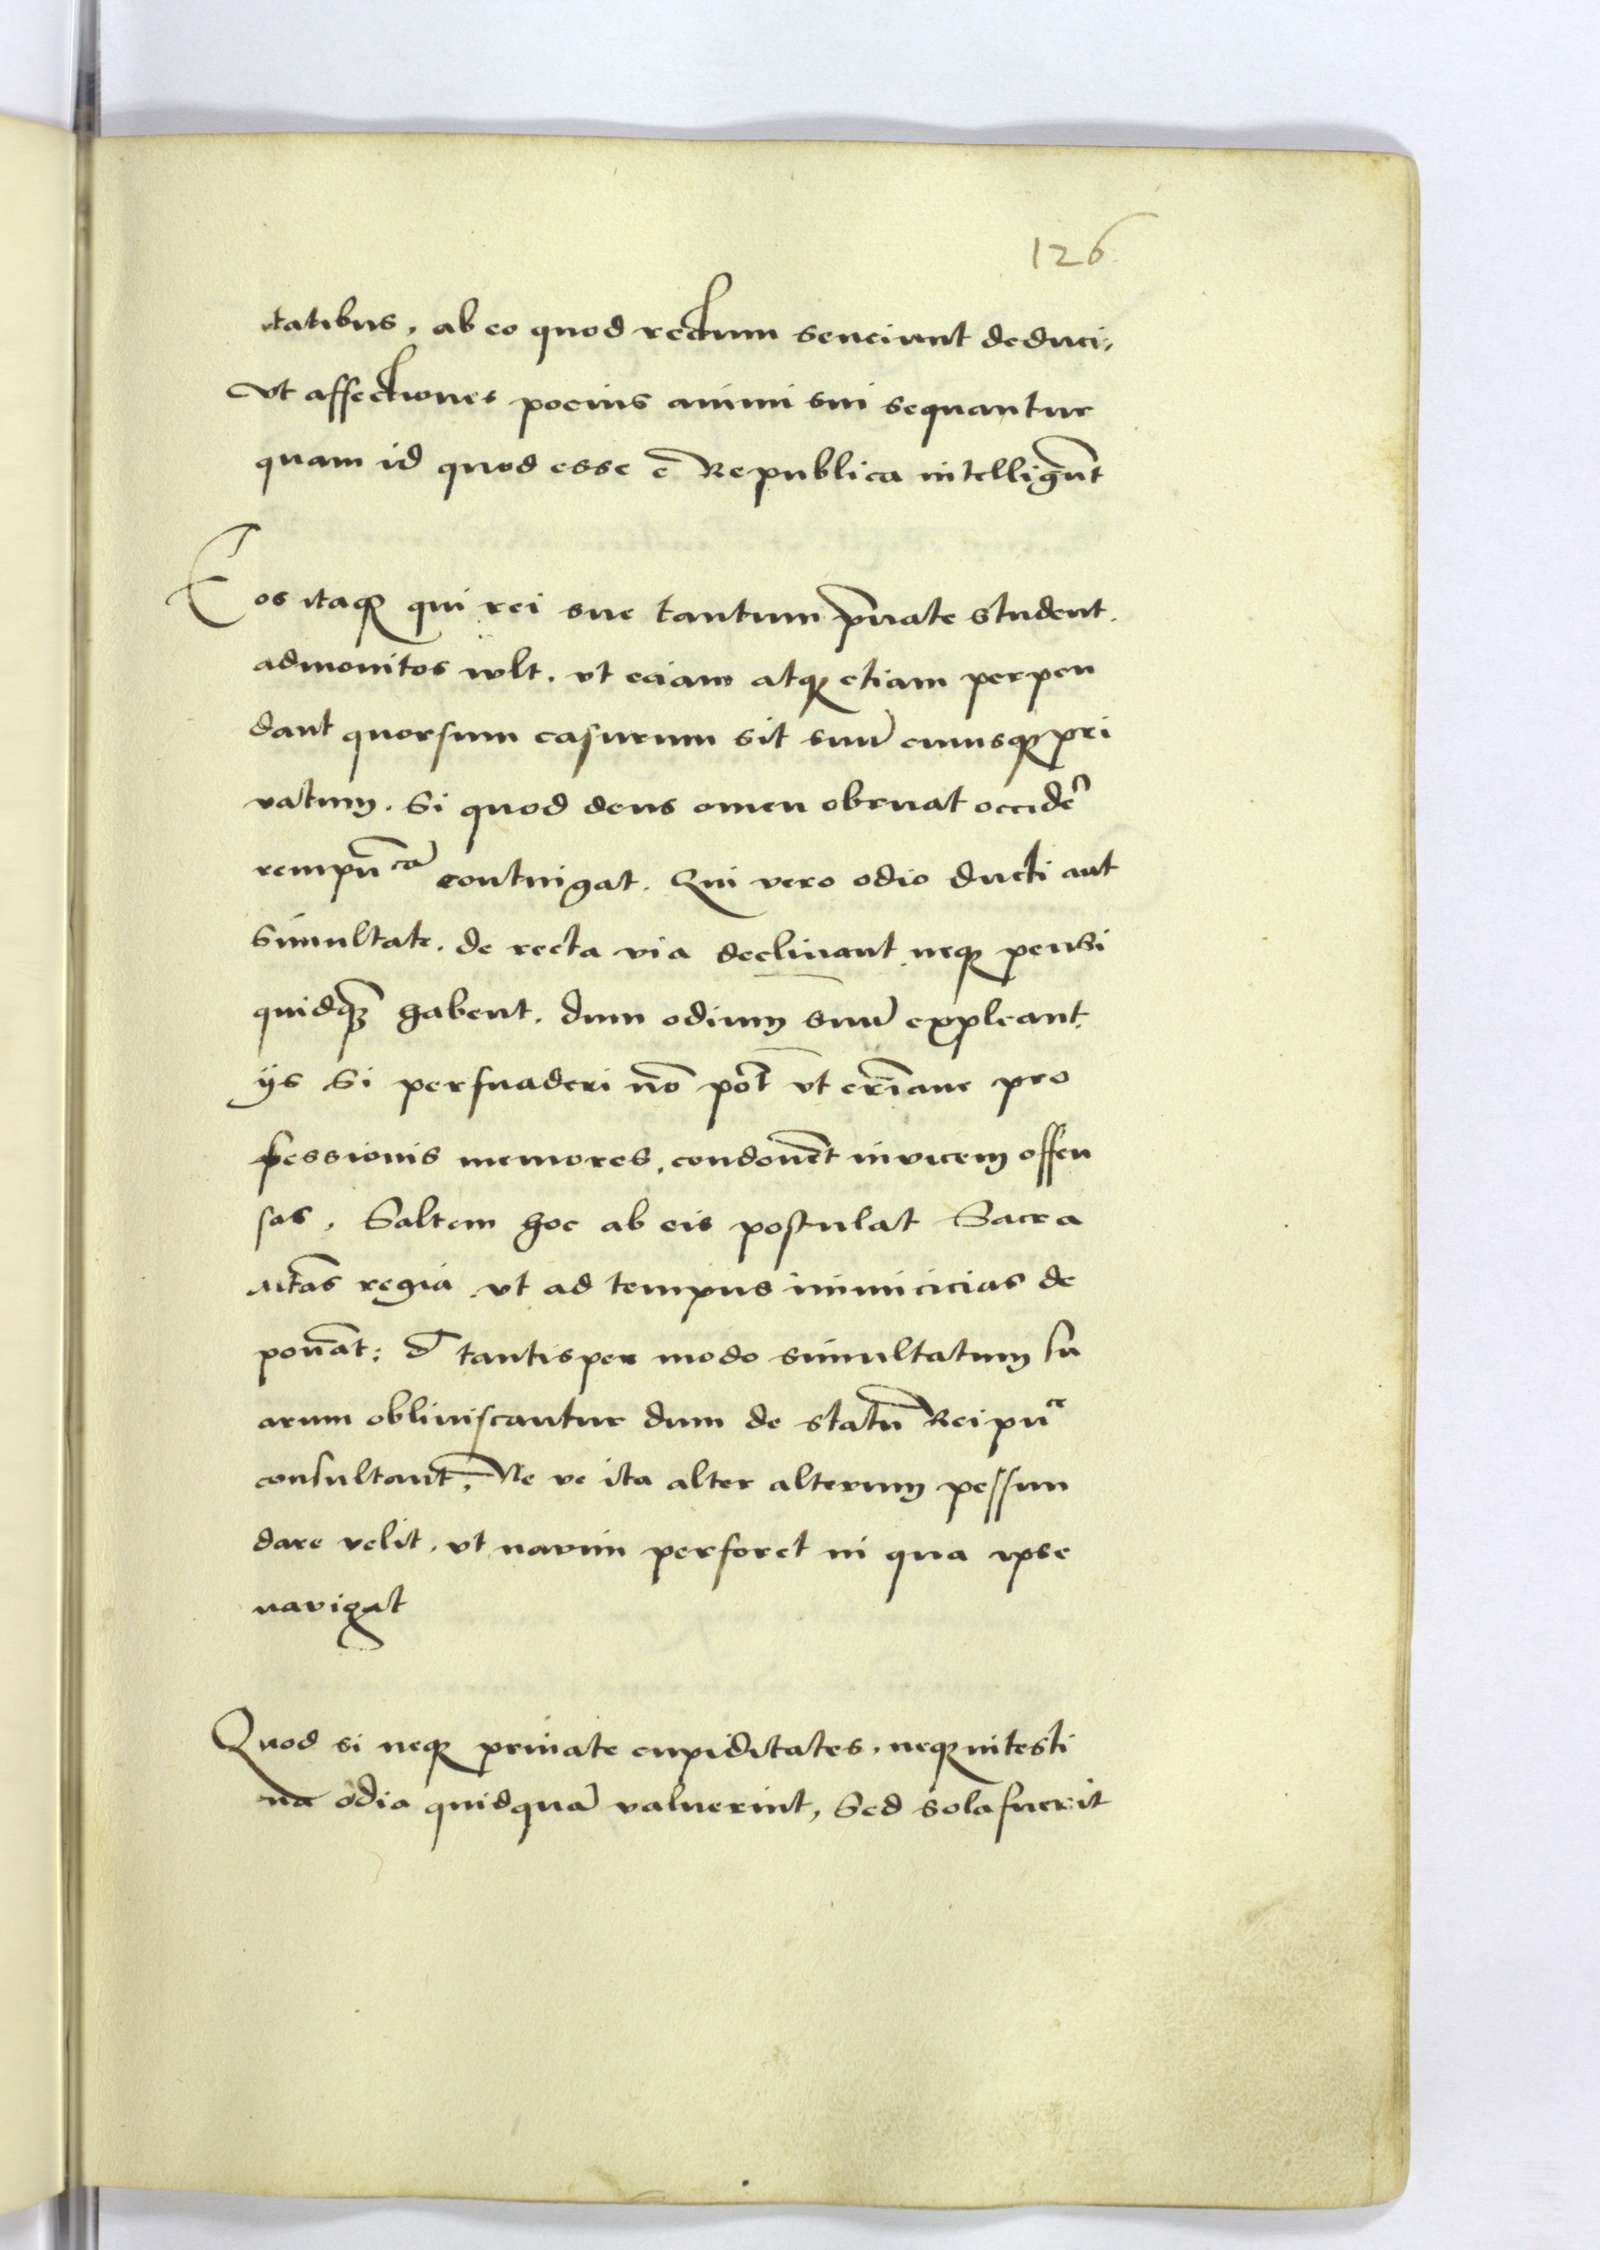 126
tatibus, ab eo quod rectum senciunt deduci,
Vt affectiones pocius animi sui sequantur
quam id quod esse ē Republica intelligūt
Eos itaqꝫ qui rei sue tantum p̄uate student.
admonitos wlt. vt eciam atqꝫ etiam perpen
dant quorsum casurum sit suū cuiusqꝫ pri
vatum. Si quod deus omen obruat occidē
rempu͞cā contingat. Qui vero odio ducti aut
simultate. de recta via declinant neqꝫ pensi
quidqꝫ̄ habent. dum odium suū expleant
ijs Si persuaderi nō pōt vt cr̄iane pro
fessionis memores, condonēt invicem offen
sas, Saltem hoc ab eis postulat Sacra
Mtās regia vt ad tempus inimicicias de
ponāt: & tantisper modo simultatum su
arum obliuiscantur dum de statu Reipu͞ce
consultant, Ne ve ita alter alterum pessun
dare velit, vt navim perforet in qua ipse
navigat
Quod si neqꝫ priuate cupiditates, neqꝫ intesti
na odia quidquā valuerint, Sed sola fuerit